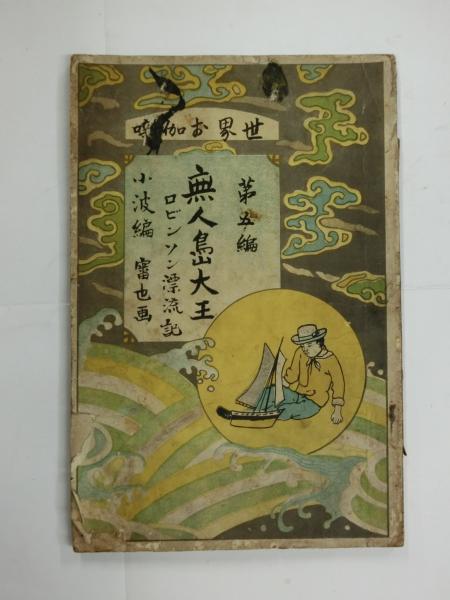 世界お伽噺
第五編
無人島大王
ロビンソン漂流記
小波編 審也画